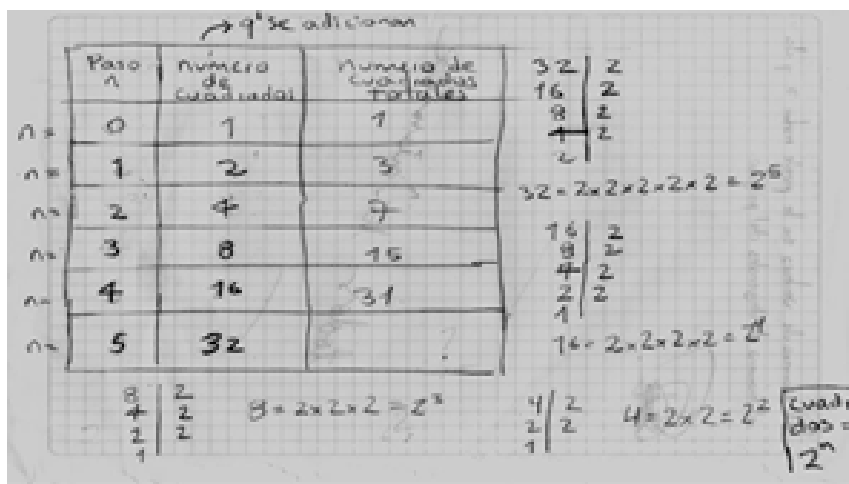 → q' se adicionan
Paso n | número de cuadrados | numero de cuadrados totales
n= 0 | 1 | 1
n= 1 | 2 | 3
n= 2 | 4 | 7
n= 3 | 8 | 15
n= 4 | 16 | 31
n= 5 | 32 | ?
32 | 2
16 | 2
8 | 2
4 | 2
2 |
32 = 2x2x2x2x2 = 2⁵
16 | 2
8 | 2
4 | 2
2 | 2
1 |
16 = 2x2x2x2 = 2⁴
8 | 2
4 | 2
2 | 2
1 |
8 = 2x2x2 = 2³
4 | 2
2 | 2
1 |
4 = 2x2 = 2²
cuadra
dos =
2ⁿ